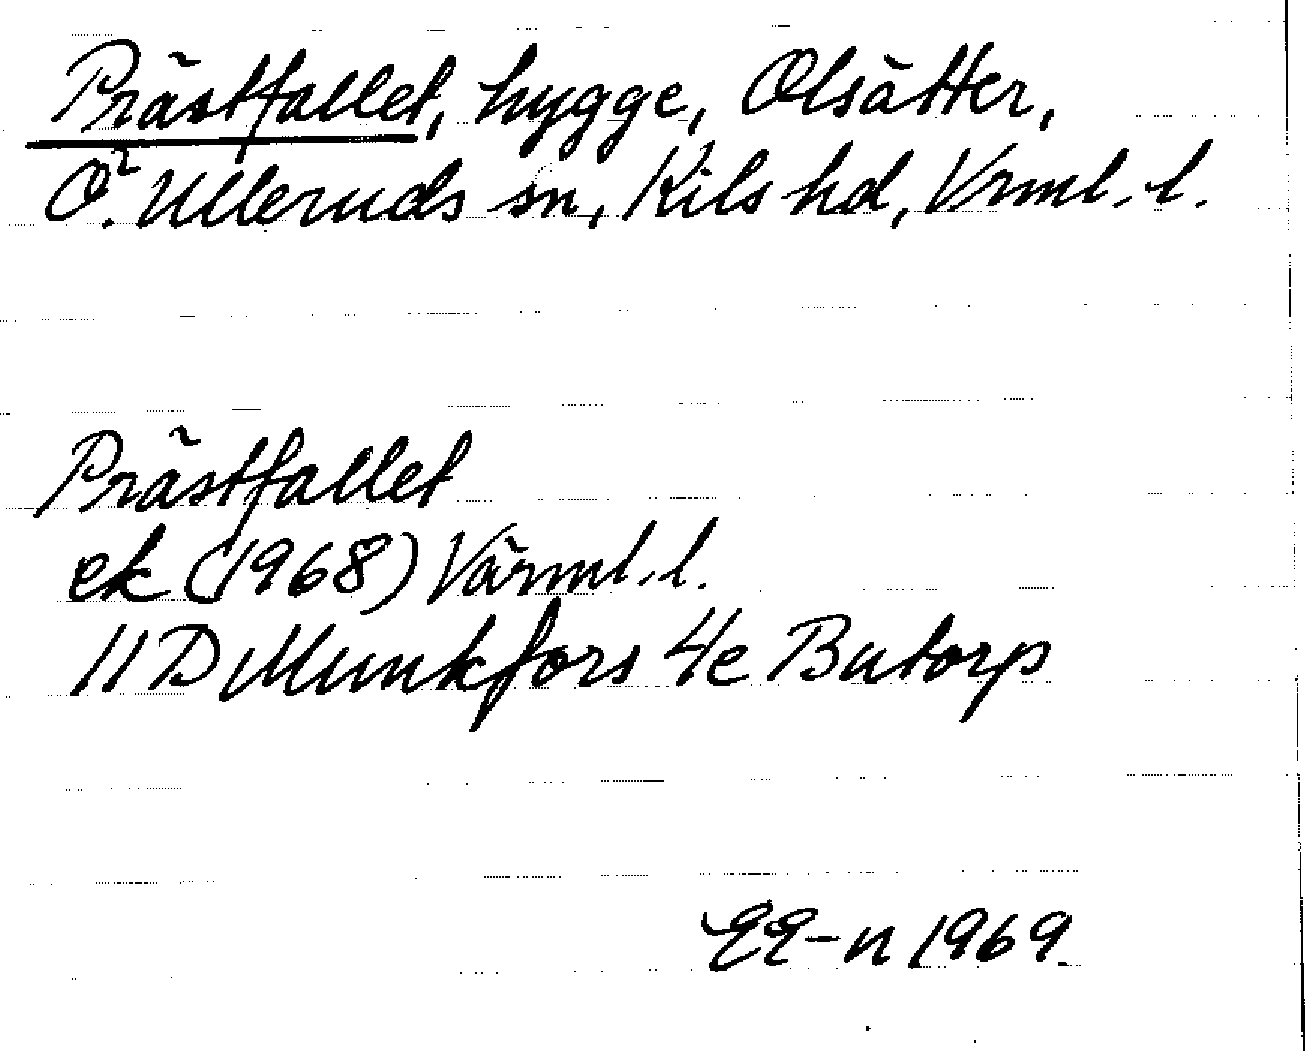 Prästfallet, hygge, Olsätter,
Ö. Ulleruds sn, Kils hd, Vrml. l.
Prästfallet
ek (1968) Värml. l.
11D Munkfors 4e Butorp
EE-n 1969